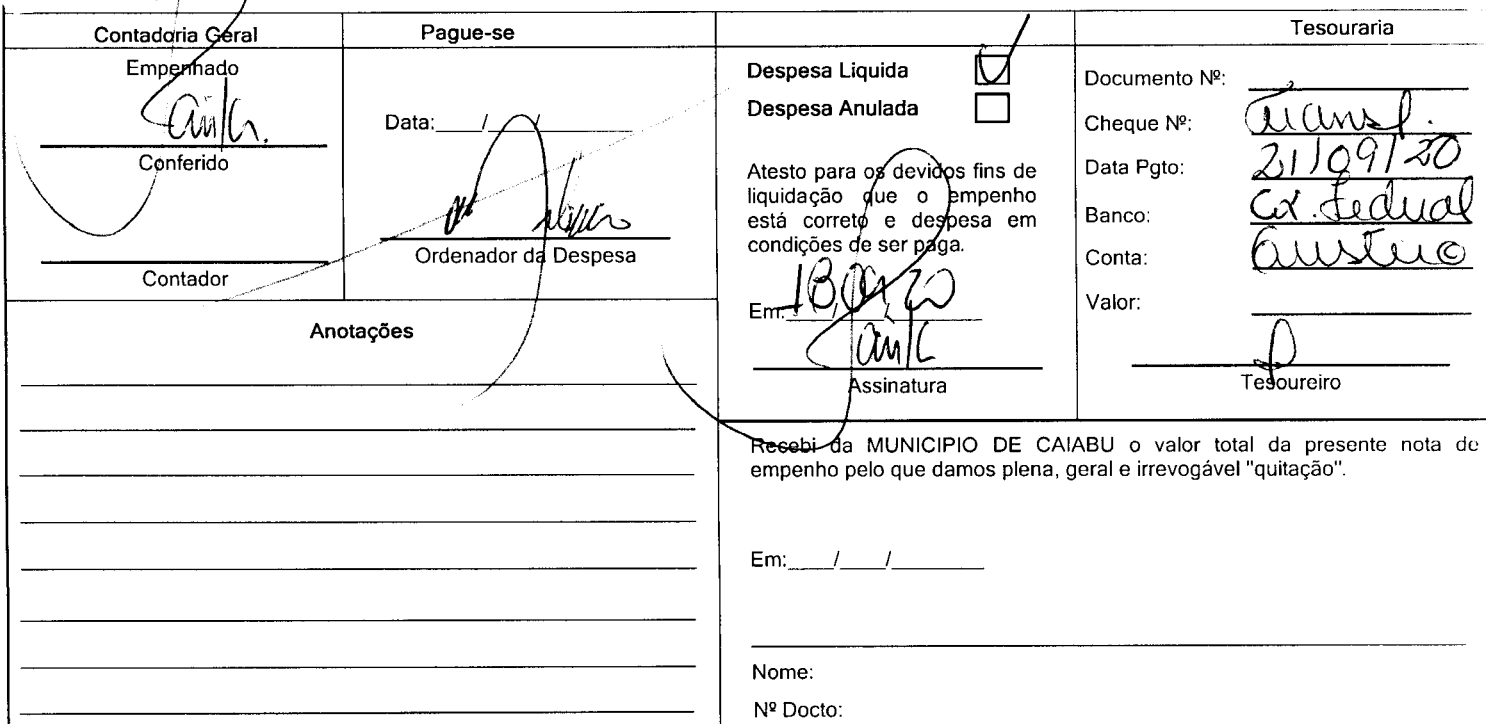 Contadoria Geral
Empenhado
Conferido
Contador
Pague-se
Data:___/___/______
Ordenador da Despesa
Despesa Liquida
Despesa Anulada
Atesto para os devidos fins de
liquidação que o empenho
está correto e despesa em
condições de ser paga.
Em: 18/09/20
Assinatura
Tesouraria
Documento Nº:
Cheque Nº: Transf.
Data Pgto: 21/09/20
Banco: Cx. Federal
Conta:
Valor:
Tesoureiro
Anotações
Recebi da MUNICIPIO DE CAIABU o valor total da presente nota de
empenho pelo que damos plena, geral e irrevogável "quitação".
Em:___/___/______
Nome:
Nº Docto: